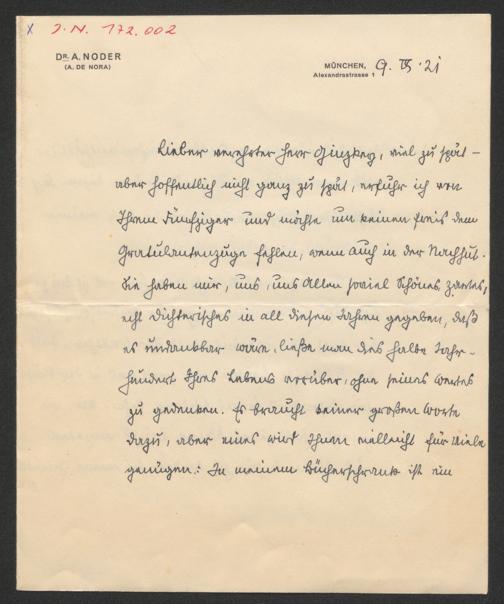 J. N. 172.002
DR. A. NODER
(A. DE NORA)
MÜNCHEN, 9. IX. 21
Alexandrastrasse 1
Lieber verehrter Herr Ginzkey, viel zu spät –
aber hoffentlich nicht ganz zu spät, erfuhr ich von
Ihrem Fünfziger und möchte um keinen Preis dem
Gratulantenzuge fehlen, wenn auch in der Nachhut.
Sie haben mir, uns, uns Allen soviel Schönes, zartes,
echt dichterisches in all diesen Jahren gegeben, daß
es undankbar wäre, ließe man dies halbe Jahr-
hundert Ihres Lebens vorüber, ohne seines Wertes
zu gedenken. Es braucht keiner großen Worte
dazu, aber eines wird Ihnen vielleicht für Viele
genügen: In meinem Bücherschrank ist ein